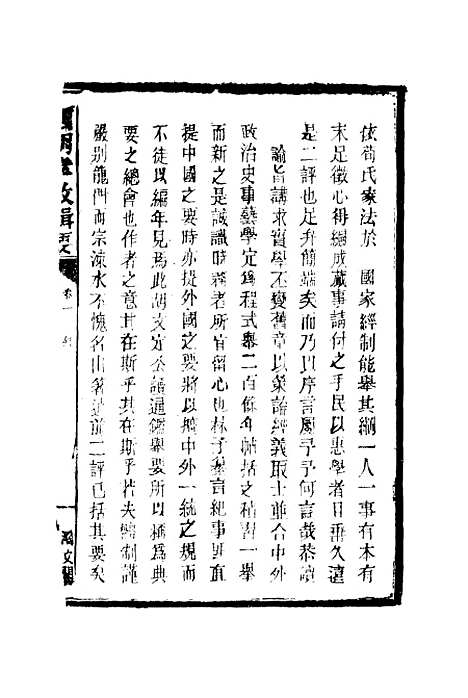 依荀氏家法於　國家經制能舉其綱一人一事有本有
末足徵心得編成蕆事請付之手民以惠學者日垂久遠
是二評也足弁簡端矣而乃以序言屬予予何言哉恭讀
諭旨講求實學丕變舊章以策論經義取士雖合中外
政治史事藝學定爲程式舉二百餘年帖括之積習一舉
而新之是誠識時務者所宜留心也林子纂言紀事匪直
提中國之要時亦提外國之要將以擴中外一統之規而
不徒以編年見焉此胡文定公讀通鑑舉要所以稱爲典
要之總會也作者之意其在斯乎其在斯乎若夫體制謹
嚴别龍門而宗涑水不愧名山著述前二評已括其要矣
政輯要
卷一
文閣